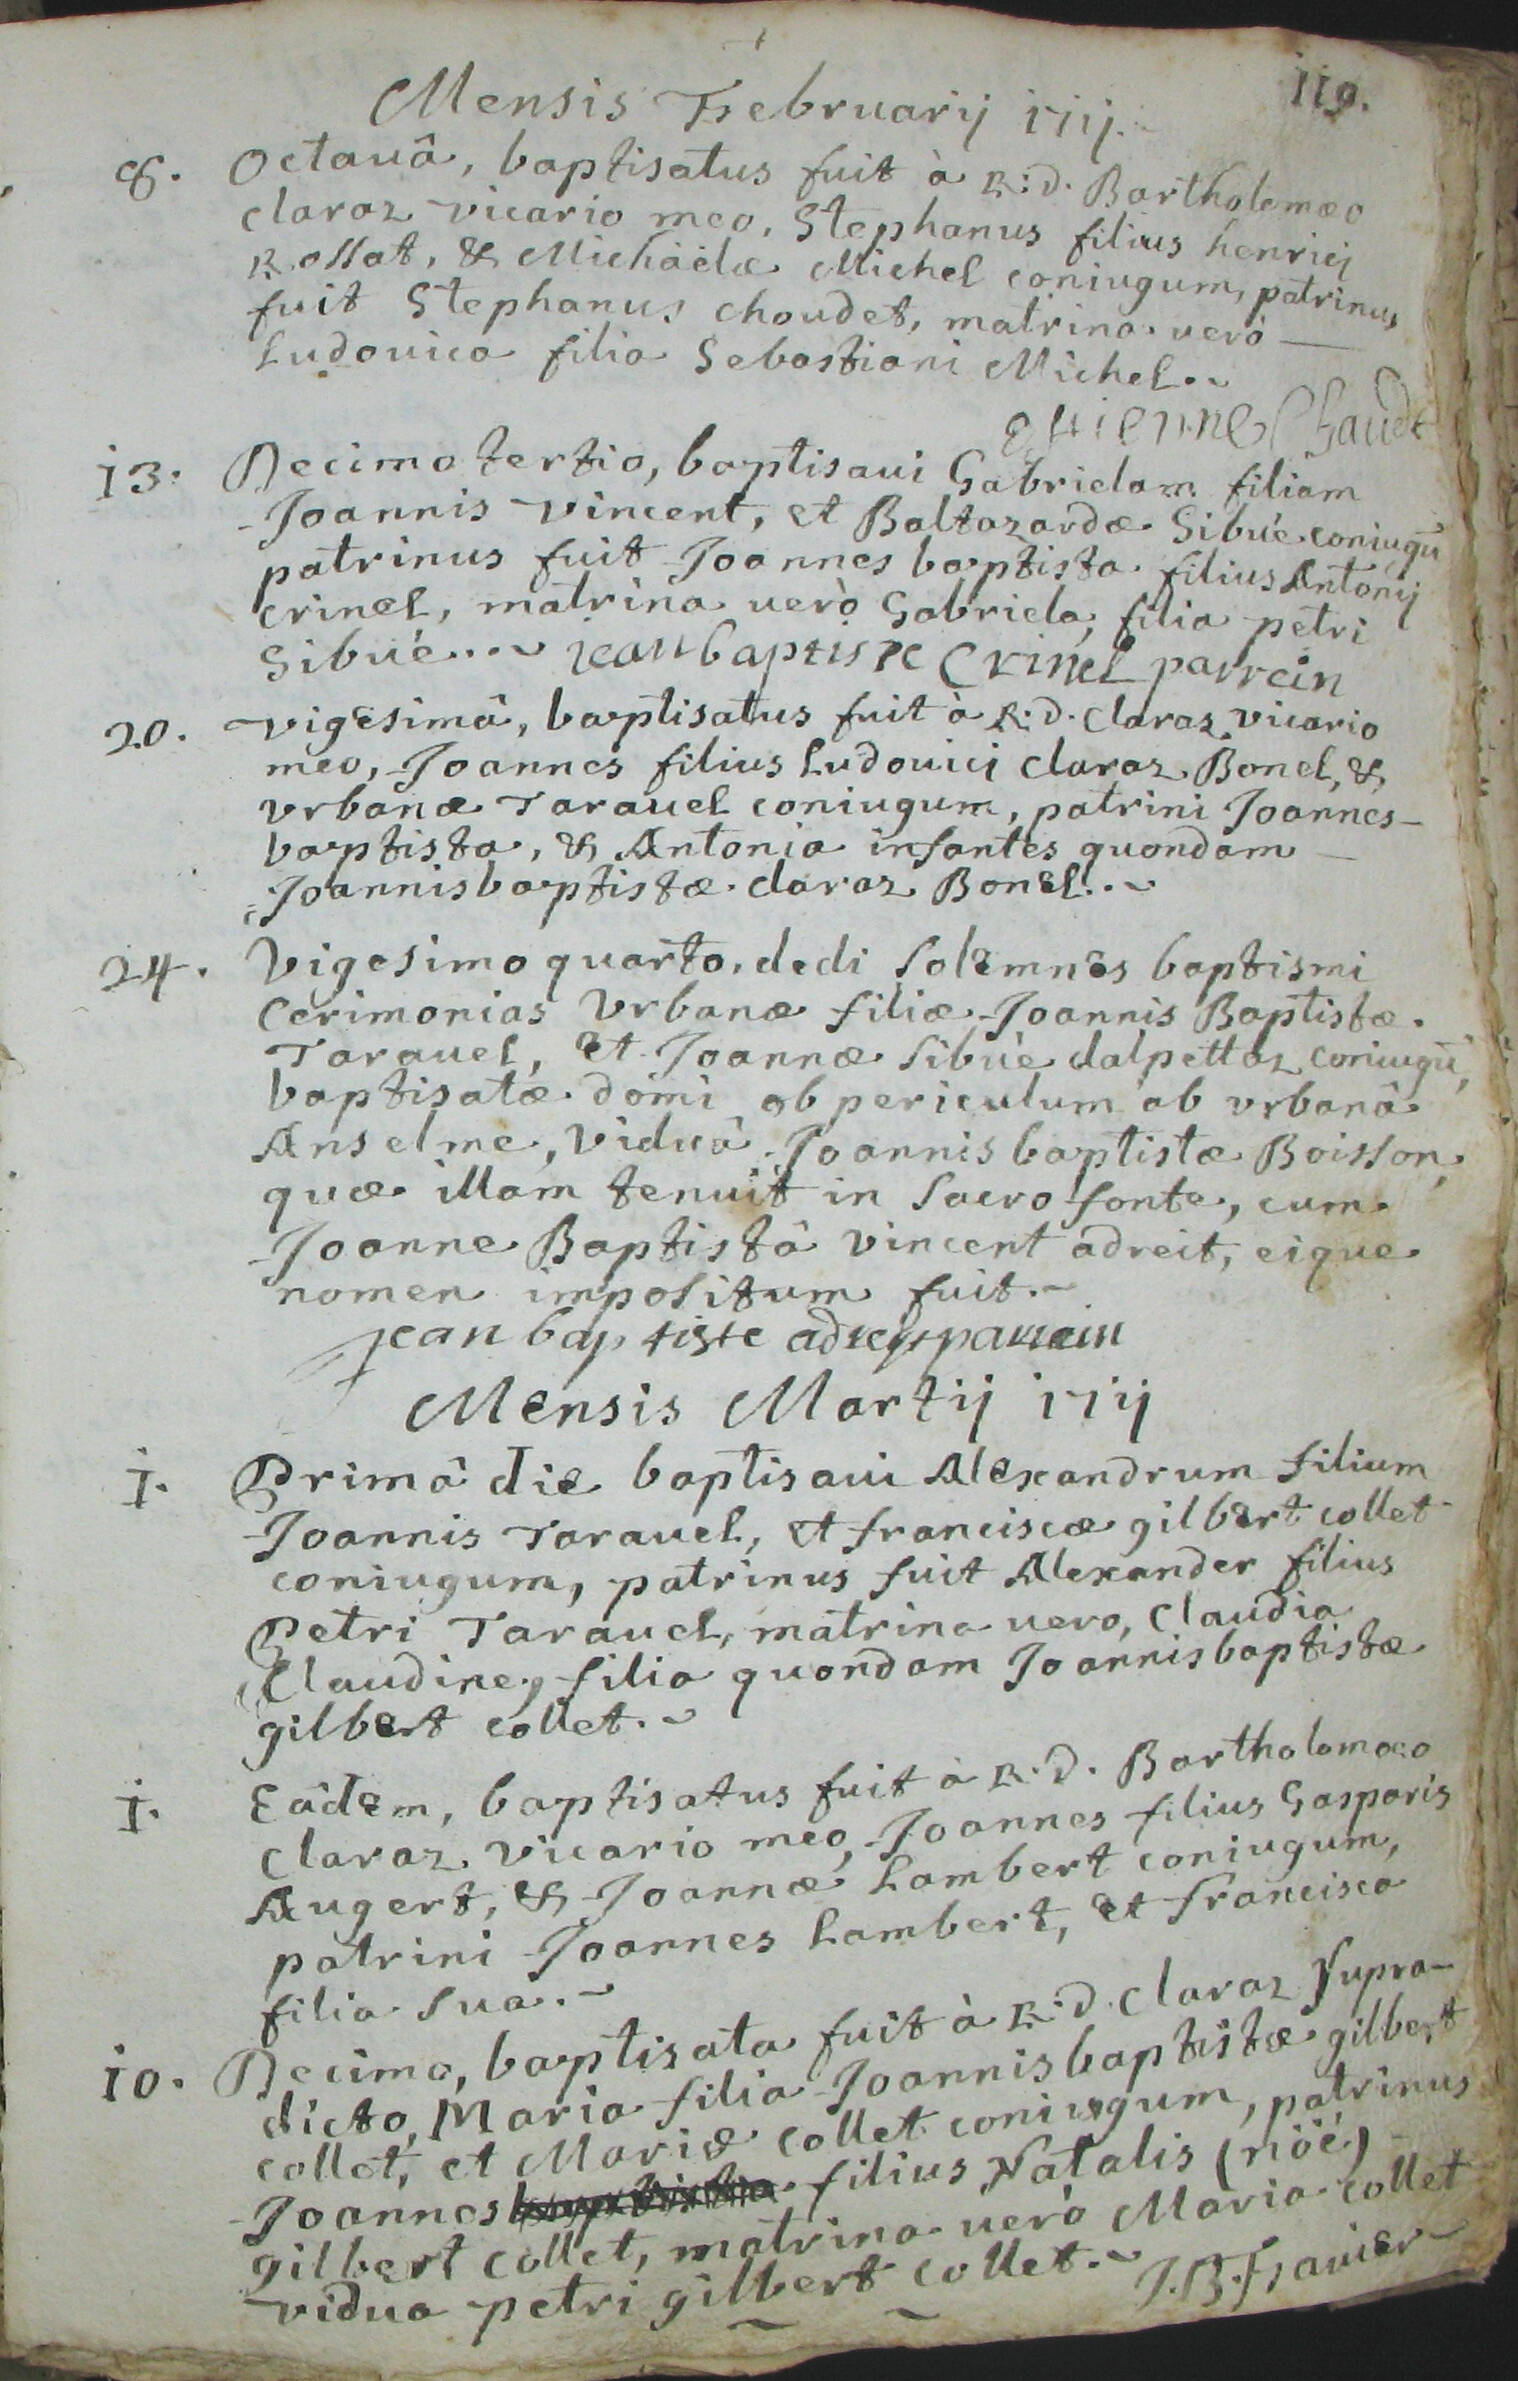 119.
Mensis Februarij 1711.
8. Octauâ, baptisatus fuit à R: d. Bartholomæo
claraz vicario meo, Stephanus filius henrici
Rossat, & Michaëlæ Michel coniugum, patrinus
fuit Stephanus choudet, matrina verò
Ludouica filia Sebastiani Michel.
etienne Chaudet
13. Decimo tertio, baptisaui Gabrielam filiam
Joannis vincent, et Baltazardæ Sibué coniugū
patrinus fuit Joannes baptista filius Antonij
crinel, matrina uerò Gabriela, filia petri
Sibué... jean baptiste Crinel parrein
20. vigesimâ, baptisatus fuit à R: d. claraz vicario
meo, Joannes filius Ludouici claraz Bonel, &
vrbanæ Tarauel coniugum, patrini Joannes
baptista, & Antonia infantes quondam
Joannisbaptistæ claraz Bonel.
24. Vigesimo quarto, dedi solemnes baptismi
Cerimonias Vrbanæ filiæ Joannis Baptistæ
Tarauel, et Joannæ Sibué dalpettaz coniugū,
baptisatæ domi ob periculum ab vrbanâ
Anselme, viduâ Joannis baptistæ Boisson,
quæ illam tenuit in sacro fonte, cum
Joanne Baptistâ vincent adreit, eique
nomen impositum fuit.
jean baptiste parrein
Mensis Martij 1711
1. Primâ die baptisaui Alexandrum filium
Joannis Tarauel, et franciscæ gilbert collet
coniugum, patrinus fuit Alexander filius
Petri Tarauel, matrina uero, Claudia
Claudine, filia quondam Joannisbaptistæ
gilbert collet.
1. Eâdem, baptisatus fuit à R: d. Bartholomæo
Claraz vicario meo, Joannes filius Gasparis
Augert, & Joannæ Lambert coniugum,
patrini Joannes Lambert, et francisca
filia sua.
10. Decima, baptisata fuit à R: d. Claraz supra-
dicto, Maria filia Joannisbaptistæ gilbert
collet, et Mariæ collet coniugum, patrinus
Joannes baptista filius Natalis (nöé)
gilbert collet, matrina uerò Maria collet
vidua petri gilbert collet.
J. B. Frauier